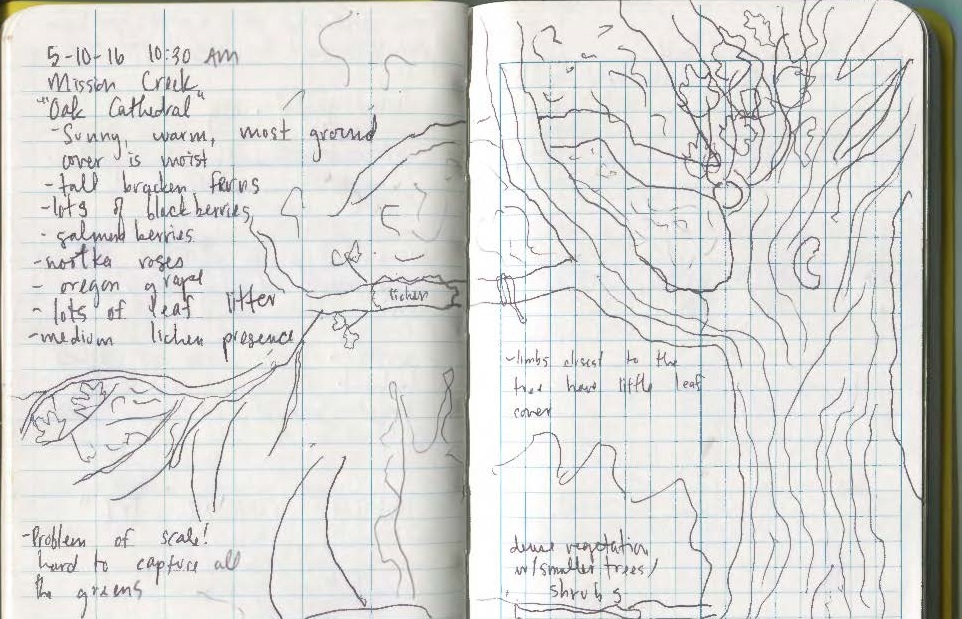 5-10-16 10:30 AM
Mission Creek
"Oak Cathedral"
-Sunny, warm, most ground
cover is moist
-tall bracken ferns
-lots of blackberries
-salmon berries
-nootka roses
- oregon grape
- lots of leaf litter
-medium lichen presence
lichen
-Problem of scale!
hard to capture all
the greens
-limbs closest to the
tree have little leaf
cover
dense vegetation
w/smaller trees/
shrubs